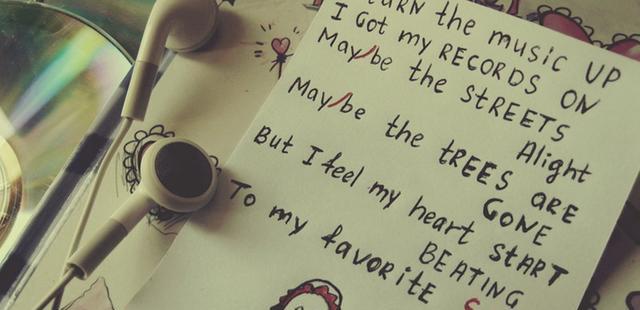 TURN the music UP
I Got my RECORDS ON
Maybe the STREETS
Alight
Maybe the tREES ARE
GONE
But I feel my heart START
BEATING
To my favoRite